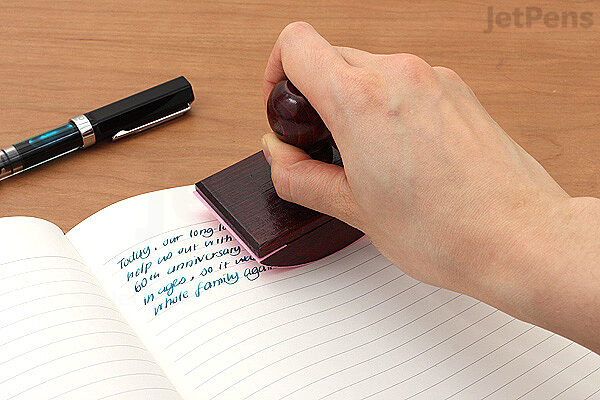 JetPens
Today, our long-l
help us out with
60th anniversary
in ages, so it wa
whole family again